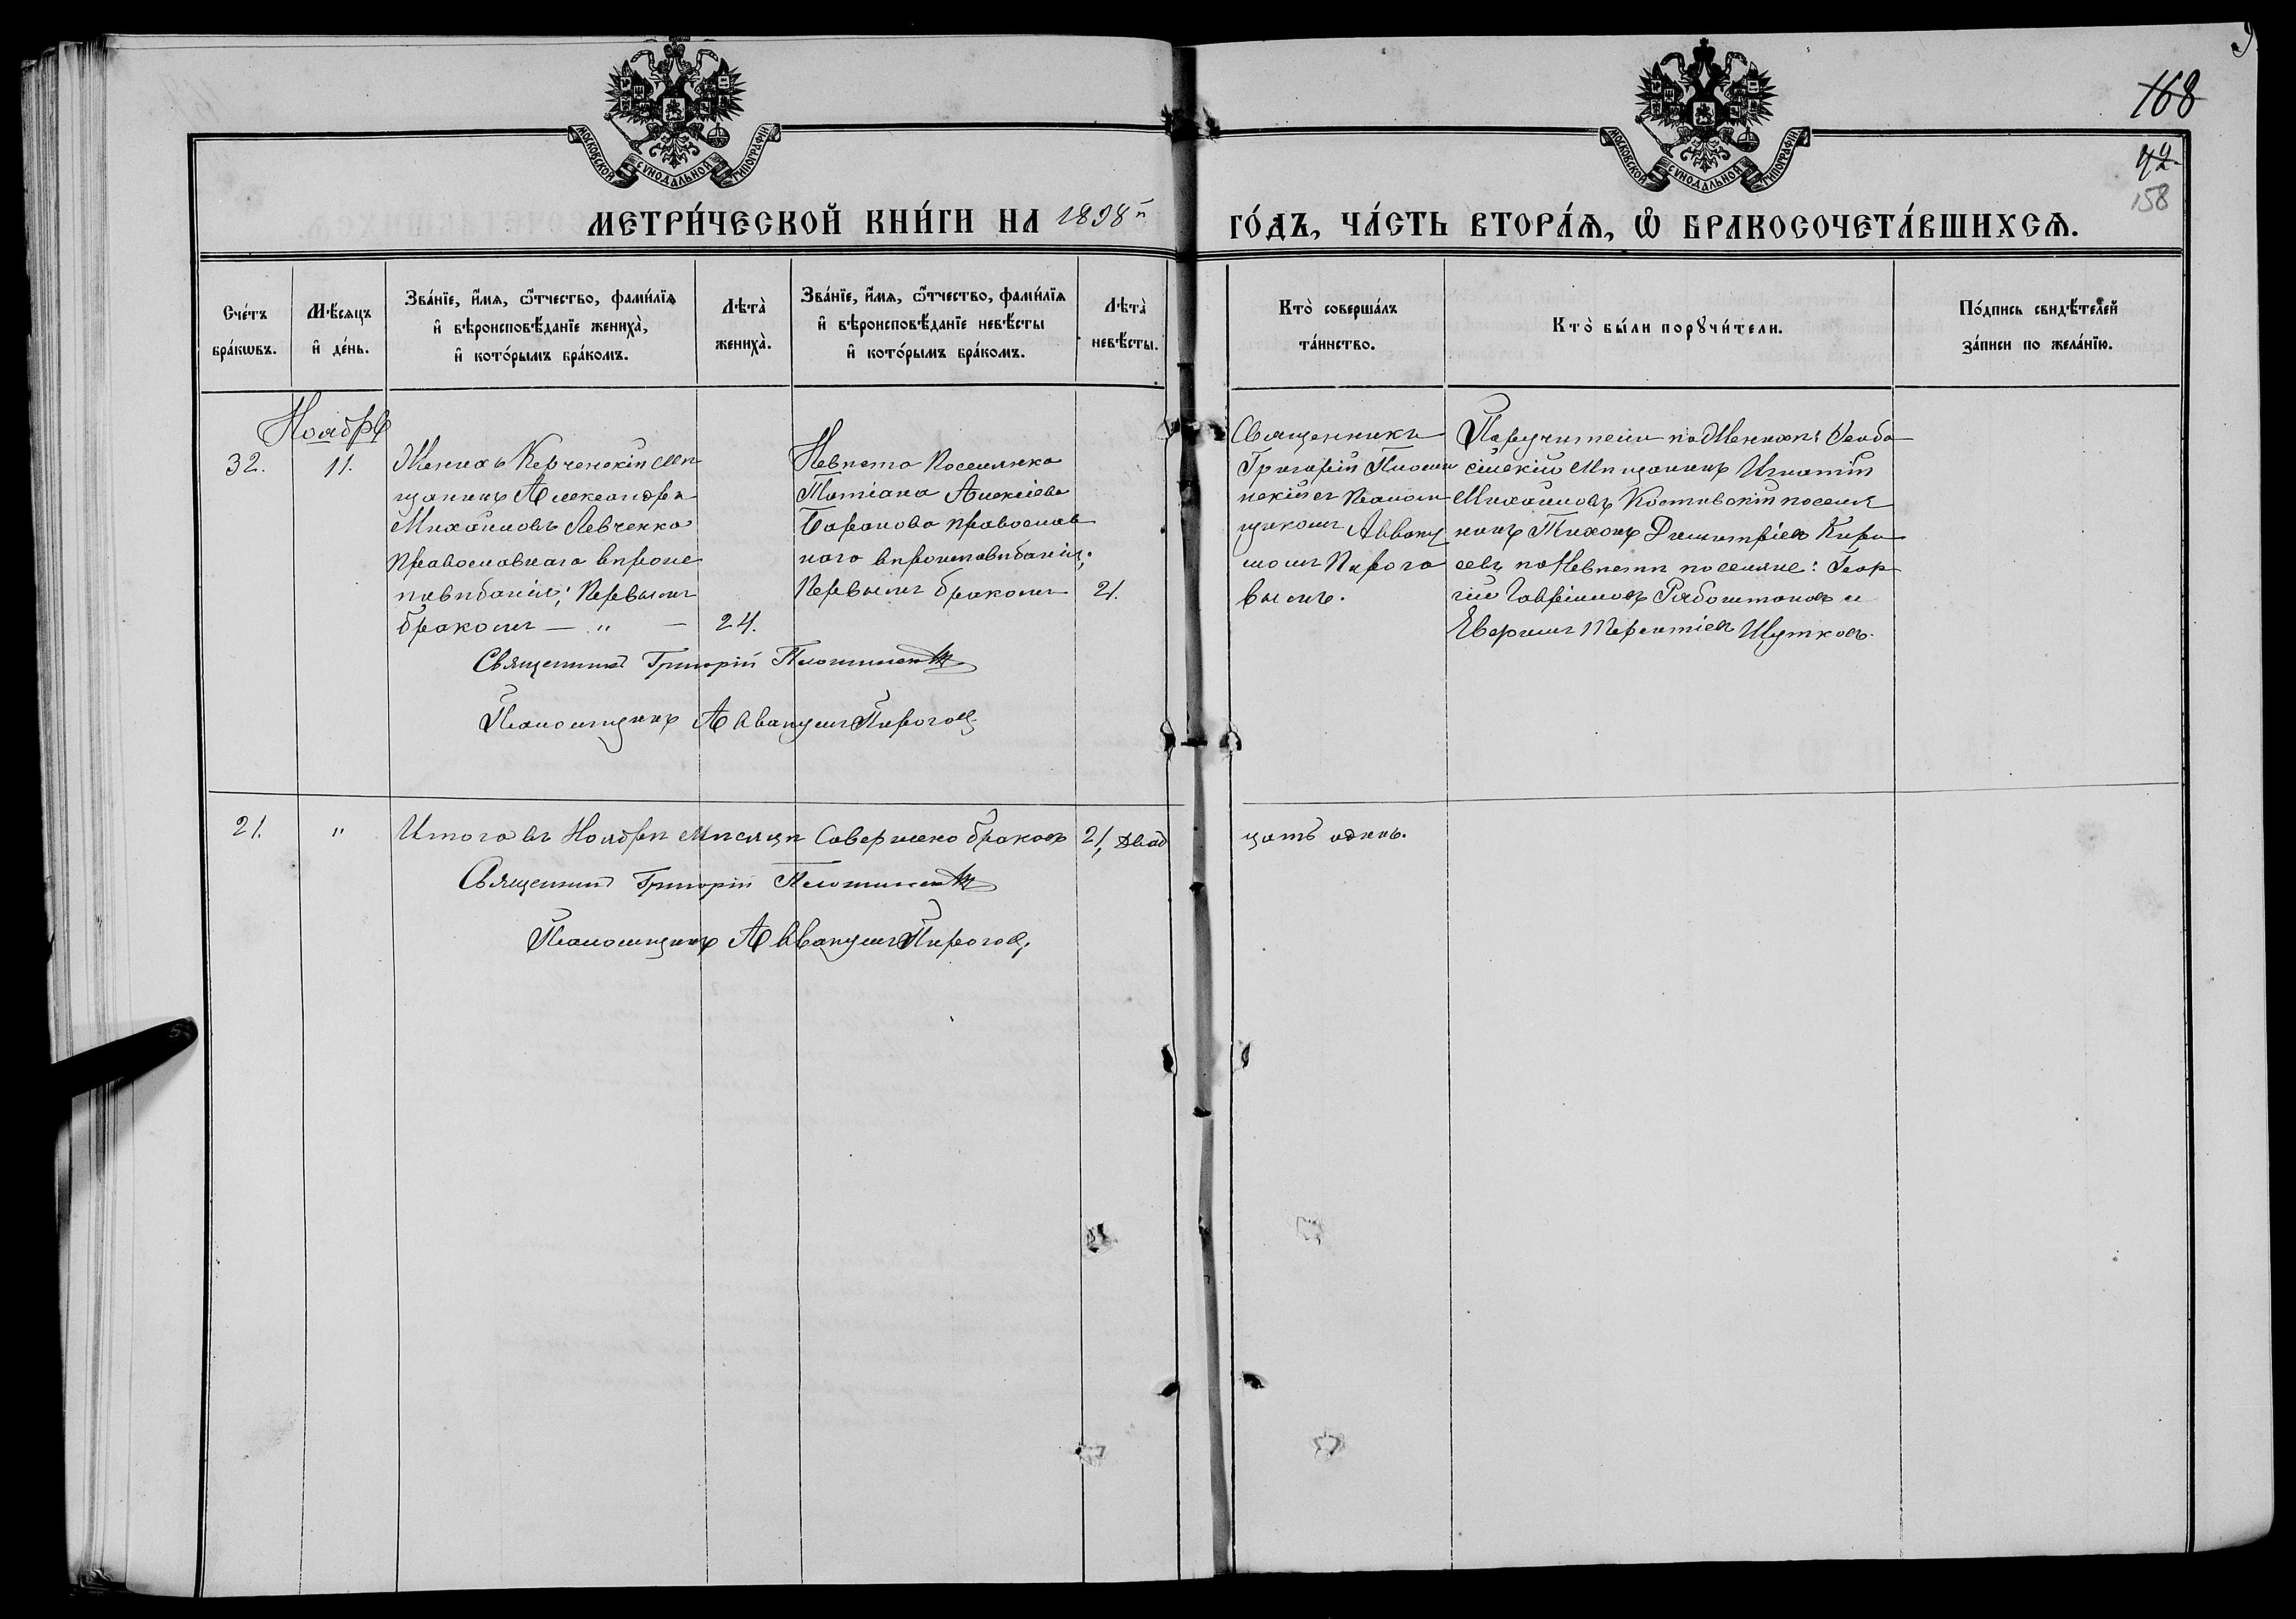 168
42
158
МОСКОВСКОЙ СѴНОДАЛЬНОЙ ТИПОГРАФІИ
МОСКОВСКОЙ СѴНОДАЛЬНОЙ ТИПОГРАФІИ
МЕТРИ́ЧЕСКОЙ КНИ́ГИ НА 1898й
ГО́ДЪ, ЧА́СТЬ ВТОРА́Ѧ, Ѡ҆ БРАКОСОЧЕТА́ВШИХСѦ.
Сче́тъ
бра́кѡвъ.
Мѣ́сяцъ
и҆ де́нь.
Зва́нїе, и҆́мя, ѻ҆́тчество, фами́лїя
и҆ вѣроисповѣ́данїе жениха̀,
и҆ кото́рымъ бра́комъ.
Лѣта̀
жениха̀.
Зва́нїе, и҆́мя, ѻ҆́тчество, фами́лїя
и҆ вѣроисповѣ́данїе невѣ́сты
и҆ кото́рымъ бра́комъ.
Лѣта̀
невѣ́сты.
Кто̀ соверша́лъ
та́инство.
Кто̀ бы́ли порꙋчи́тели.
По́дпись свидѣ́телей
за́писи по жела́нїю.
Ноябрь
32.
11.
Женихъ Керченскій мѣ
щанинъ Александръ
Михаиловъ Левченко
православнаго вѣроис
повѣданія; Первымъ
бракомъ — " —
24.
Невѣста Поселянка
Татіана Алексіева
Баранова православ
наго вѣроисповѣданія;
Первымъ бракомъ
21.
Священникъ
Григорій Плотин
скій съ Псалом
щикомъ Аввакум
момъ Пирого
вымъ.
Поручители по Женихѣ: Феодо
сійскій Мѣщанинъ Игнатій
Михаиловъ Костивскій поселя
нинъ Тихонъ Димитріевъ Кире
евъ по Невѣстѣ поселяне: Геор
гій Гавріиловъ Рябоштановъ и
Терентіевъ Шутковъ.
Священникъ Григорій Плотинскій
Псаломщикъ Аввакумъ Пироговъ
21.
"
Итого въ Ноябрѣ Мѣсяцѣ Совершено браковъ 21, Двад
цать одинъ.
Священникъ Григорій Плотинскій
Псаломщикъ Аввакумъ Пироговъ